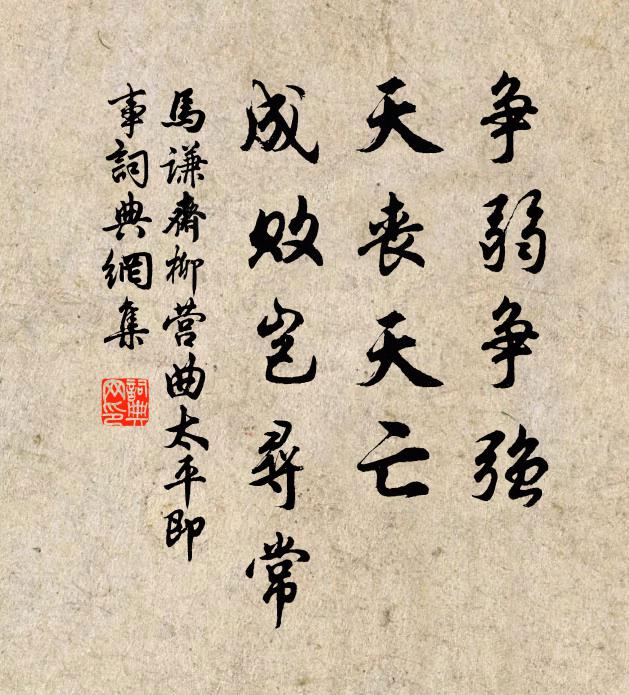 争弱争強
天丧天亡
成败岂尋常
馬谦齋柳营曲太平即
事詞典網集
詞典
网印